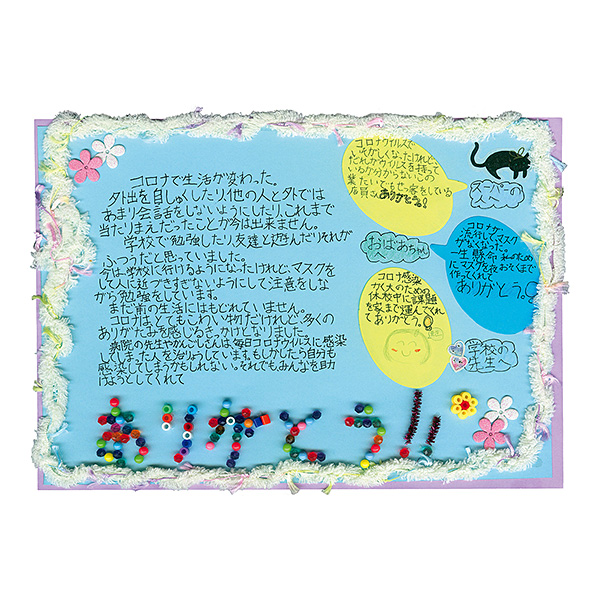 コロナで生活が変わった。
外出を自しゅくしたり、他の人と外では
あまり会話をしないようにしたり、これまで
当たりまえだったことが今は出来ません。
学校で勉強したり、友達と遊んだりそれが
ふつうだと思っていました。
今は学校に行けるようになったけれど、マスクを
して人に近づきすぎないようにして注意をしな
がら勉強をしています。
まだ前の生活にはもどれていません。
コロナはとてもこわい物だけれど、多くの
ありがたみを感じるきっかけとなりました。
病院の先生やかんごしさんは毎日コロナウイルスに感染
してしまった人を治りょうしています。もしかしたら自分も
感染してしまうかもしれない。それでもみんなを助
けようとしてくれて
ありがとう!!
コロナウイルスで
いそがしくなったけれど、
だれがウイルスを持って
いるか分からないこの
中
ありがとう!
スーパーの
コロナが
流行してマスク
がなくなった。
一生懸命私のため
にマスクを夜おそくまで
作ってくれて
ありがとう。
おばあちゃんへ
コロナ感染
かく大のための
休校中に課題
を家まで運んでくれ
てありがとう。
学校の
先生へ